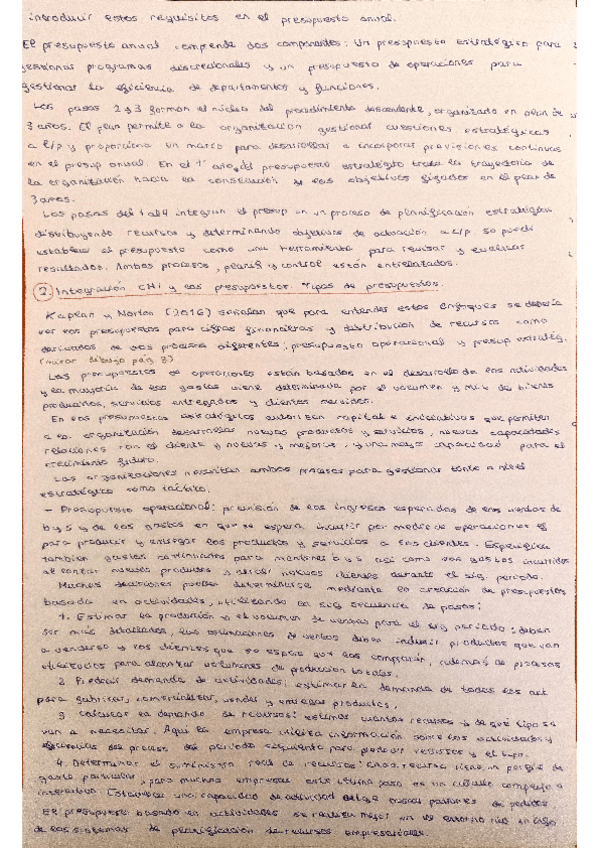 introducir estos requisitos en el presupuesto anual.
El presupuesto anual comprende dos componentes: Un presupuesto estratégico para
gestionar programas discrecionales y un presupuesto de operaciones para
gestionar la eficiencia de departamentos y funciones.
Los pasos 2 y 3 forman el núcleo del procedimiento descendente, organizado en plan de
3 años. El plan permite a la organización gestionar cuestiones estratégicas
a l/p y proporciona un marco para desarrollar e incorporar previsiones continuas
en el presup anual. En el 1er año, el presupuesto estratégico traza la trayectoria de
la organización hacia la consecución de los objetivos fijados en el plan de
3 años.
Los pasos del 1 al 4 integran el presup en un proceso de planificación estratégica
distribuyendo recursos y determinando objetivos de actuación a c/p. so puede
establecer el presupuesto como una herramienta para revisar y evaluar
resultados. Ambos procesos, planif y control están entrelazados.
2. Integración CMI y los presupuestos. Tipos de presupuestos.
Kaplan y Norton (2016) señalan que para entender estos enfoques se debería
ver los presupuestos para cifras financieras y distribución de recursos como
derivados de dos procesos diferentes; presupuesto operacional y presup estratég.
(mirar dibujo pág. 8)
Los presupuestos de operaciones están basados en el desarrollo de las actividades
y la mayoría de los gastos viene determinada por el volumen y mix de bienes
producidos, servicios entregados y clientes servidos.
En los presupuestos estratégicos autorizan capital e iniciativas que permiten
a la organización desarrollar nuevos productos y servicios, nuevas capacidades
relaciones con el cliente y nuevas y mejoras, y una mayor capacidad para el
crecimiento futuro.
Las organizaciones necesitan ambos procesos para gestionar tanto a nivel
estratégico como táctico.
- Presupuesto operacional: previsión de los ingresos esperados de las ventas de
b y s y de los gastos en que se espera incurrir por medio de operaciones
para producir y entregar los productos y servicios a los clientes. Especifica
también gastos destinados para mantener b y s así como los gastos incurridos
al lanzar nuevos productos y atraer nuevos clientes durante el sig. período.
Muchas decisiones pueden determinarse mediante la creación de presupuestos
basada en actividades, utilizando la sig secuencia de pasos:
1. Estimar la producción y el volumen de ventas para el sig período: deben
ser más detallados, las estimaciones de ventas deben incluir productos que van
a venderse y los clientes que se espera que los comprarán, además de
para alcanzar volúmenes de producción totales.
2. Predecir demanda de actividades: estimar la demanda de todas las act
para fabricar, comercializar, vender y entregar productos.
3. Calcular la demanda de recursos: estimar cuántos recursos y de qué tipo se
van a necesitar. Aquí la empresa utiliza información sobre las actividades y
del proceso del período siguiente para predecir recursos y el tipo.
4. Determinar el suministro real de recursos: cada recurso tiene un perfil de
gasto particular, para muchas empresas este último paso es un cálculo complejo e
interactivo. Establecer una capacidad de actividad exige patrones de pedidos
El presupuesto basado en actividades se realiza mejor en un entorno
de los sistemas de planificación de recursos empresariales.